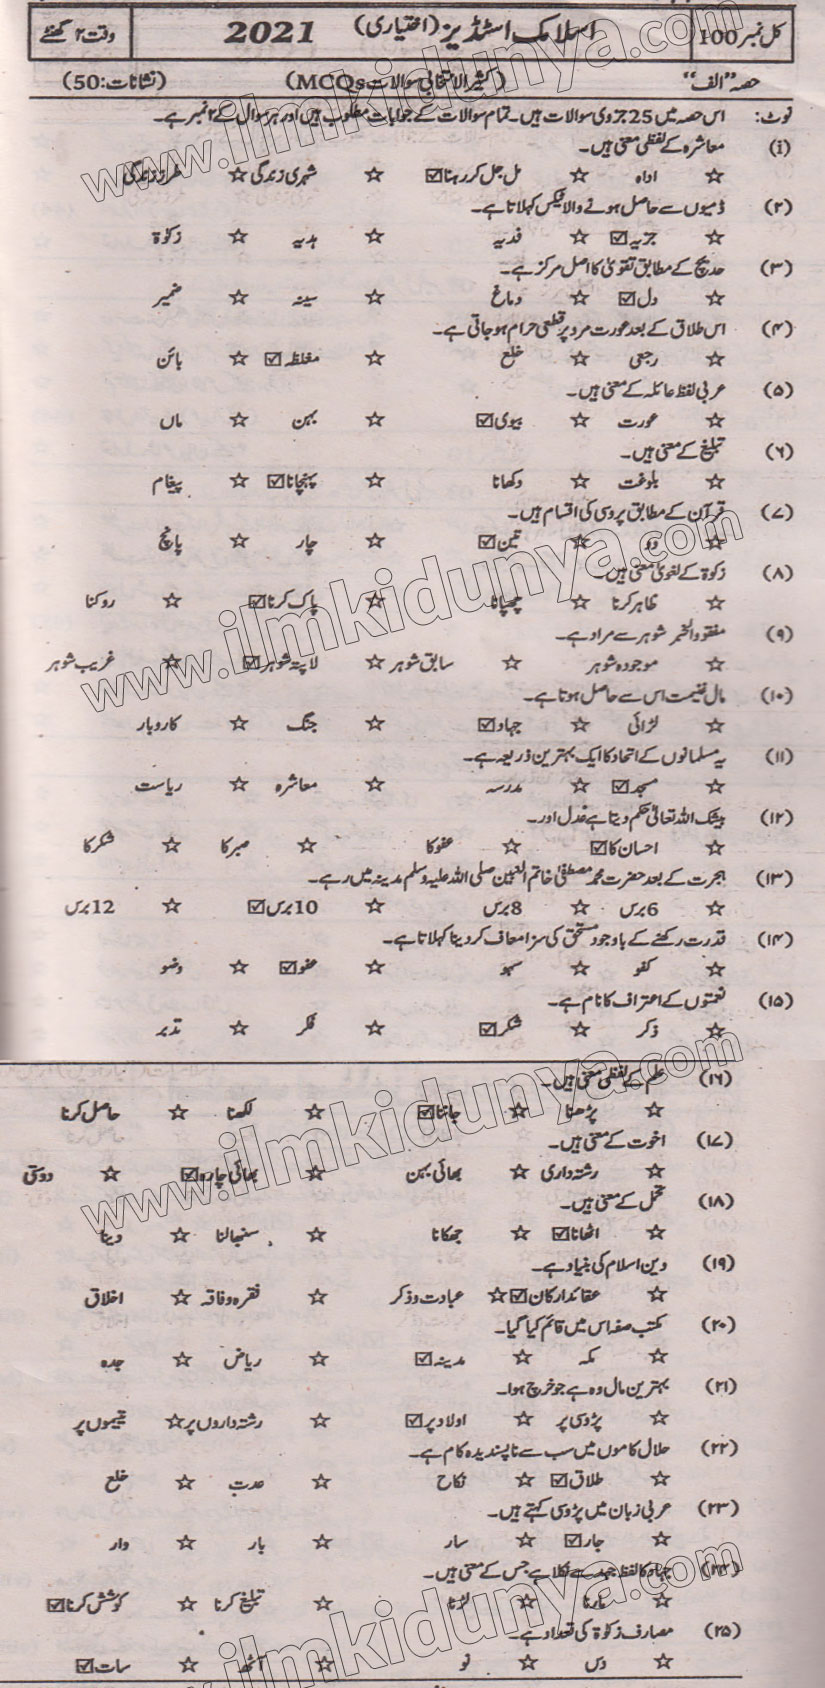 کل نمبر 100 اسلامک اسٹڈیز (اختیاری) 2021 وقت ۲ گھنٹے
حصہ "الف" (کثیر الانتخابی سوالات MCQs) (نشانات: 50)
نوٹ: اس حصہ میں 25 جزوی سوالات ہیں۔ تمام سوالات کے جوابات مطلوب ہیں اور ہر سوال کے ۲ نمبر ہے۔
(i) معاشرہ کے لفظی معنی ہیں۔
☆ ادہ ☆ مل جل کر رہنا ☑ ☆ شہری زندگی ☆ طرز زندگی
(۲) ذمیوں سے حاصل ہونے والا ٹیکس کہلاتا ہے۔
☆ جزیہ ☑ ☆ فدیہ ☆ ہدیہ ☆ زکوٰۃ
(۳) حدیث کے مطابق تقویٰ کا اصل مرکز ہے۔
☆ دل ☑ ☆ دماغ ☆ سینہ ☆ ضمیر
(۴) اس طلاق کے بعد عورت مرد پر قطعی حرام ہو جاتی ہے۔
☆ رجعی ☆ خلع ☆ مغلظہ ☑ ☆ بائن
(۵) عربی لفظ عائلہ کے معنی ہیں۔
☆ عورت ☆ بیوی ☑ ☆ بہن ☆ ماں
(۶) تبلیغ کے معنی ہیں۔
☆ بلوغت ☆ دکھانا ☆ پہنچانا ☑ ☆ پیغام
(۷) قرآن کے مطابق پڑوسی کی اقسام ہیں۔
☆ دو ☆ تین ☑ ☆ چار ☆ پانچ
(۸) زکوٰۃ کے لغوی معنی ہیں۔
☆ ظاہر کرنا ☆ چھپانا ☆ پاک کرنا ☑ ☆ روکنا
(۹) مفقود الخبر شوہر سے مراد ہے۔
☆ موجودہ شوہر ☆ سابق شوہر ☆ لاپتہ شوہر ☑ ☆ غریب شوہر
(۱۰) مال غنیمت اس سے حاصل ہوتا ہے۔
☆ لڑائی ☆ جہاد ☑ ☆ جنگ ☆ کاروبار
(۱۱) یہ مسلمانوں کے اتحاد کا ایک بہترین ذریعہ ہے۔
☆ مسجد ☑ ☆ مدرسہ ☆ معاشرہ ☆ ریاست
(۱۲) بیشک اللہ تعالیٰ حکم دیتا ہے عدل اور۔
☆ احسان کا ☑ ☆ عفو کا ☆ صبر کا ☆ شکر کا
(۱۳) ہجرت کے بعد حضرت محمد مصطفیٰ خاتم النبیین صلی اللہ علیہ وسلم مدینہ میں رہے۔
☆ 6 برس ☆ 8 برس ☆ 10 برس ☑ ☆ 12 برس
(۱۴) قدرت رکھنے کے باوجود مستحق کی سزا معاف کر دینا کہلاتا ہے۔
☆ کفو ☆ سہو ☆ عفو ☑ ☆ وضو
(۱۵) نعمتوں کے اعتراف کا نام ہے۔
☆ ذکر ☆ شکر ☑ ☆ فکر ☆ تدبر
(۱۶) علم کے لفظی معنی ہیں۔
☆ پڑھنا ☆ جاننا ☑ ☆ لکھنا ☆ حاصل کرنا
(۱۷) اخوت کے معنی ہیں۔
☆ رشتہ داری ☆ بھائی بہن ☆ بھائی چارہ ☑ ☆ دوستی
(۱۸) تحمل کے معنی ہیں۔
☆ اٹھانا ☑ ☆ جھکانا ☆ سنبھالنا ☆ دینا
(۱۹) دین اسلام کی بنیاد ہے۔
☆ عقائد ارکان ☑ ☆ عبادت و ذکر ☆ فقرہ و فاقہ ☆ اخلاق
(۲۰) مکتب صفہ اس میں قائم کیا گیا۔
☆ مکہ ☆ مدینہ ☑ ☆ ریاض ☆ جدہ
(۲۱) بہترین مال وہ ہے جو خرچ ہوا۔
☆ پڑوسی پر ☆ اولاد پر ☑ ☆ رشتہ داروں پر ☆ یتیموں پر
(۲۲) حلال کاموں میں سب سے ناپسندیدہ کام ہے۔
☆ طلاق ☑ ☆ نکاح ☆ عدت ☆ خلع
(۲۳) عربی زبان میں پڑوسی کہتے ہیں۔
☆ جار ☑ ☆ سار ☆ بار ☆ وار
(۲۴) جہاد کا لفظ جہد سے نکلا ہے جس کے معنی ہیں۔
☆ مارنا ☆ لڑنا ☆ تبلیغ کرنا ☆ کوشش کرنا ☑
(۲۵) مصارف زکوٰۃ کی تعداد ہے۔
☆ دس ☆ نو ☆ آٹھ ☆ سات ☑
www.ilmkidunya.com
www.ilmkidunya.com
www.ilmkidunya.com
www.ilmkidunya.com